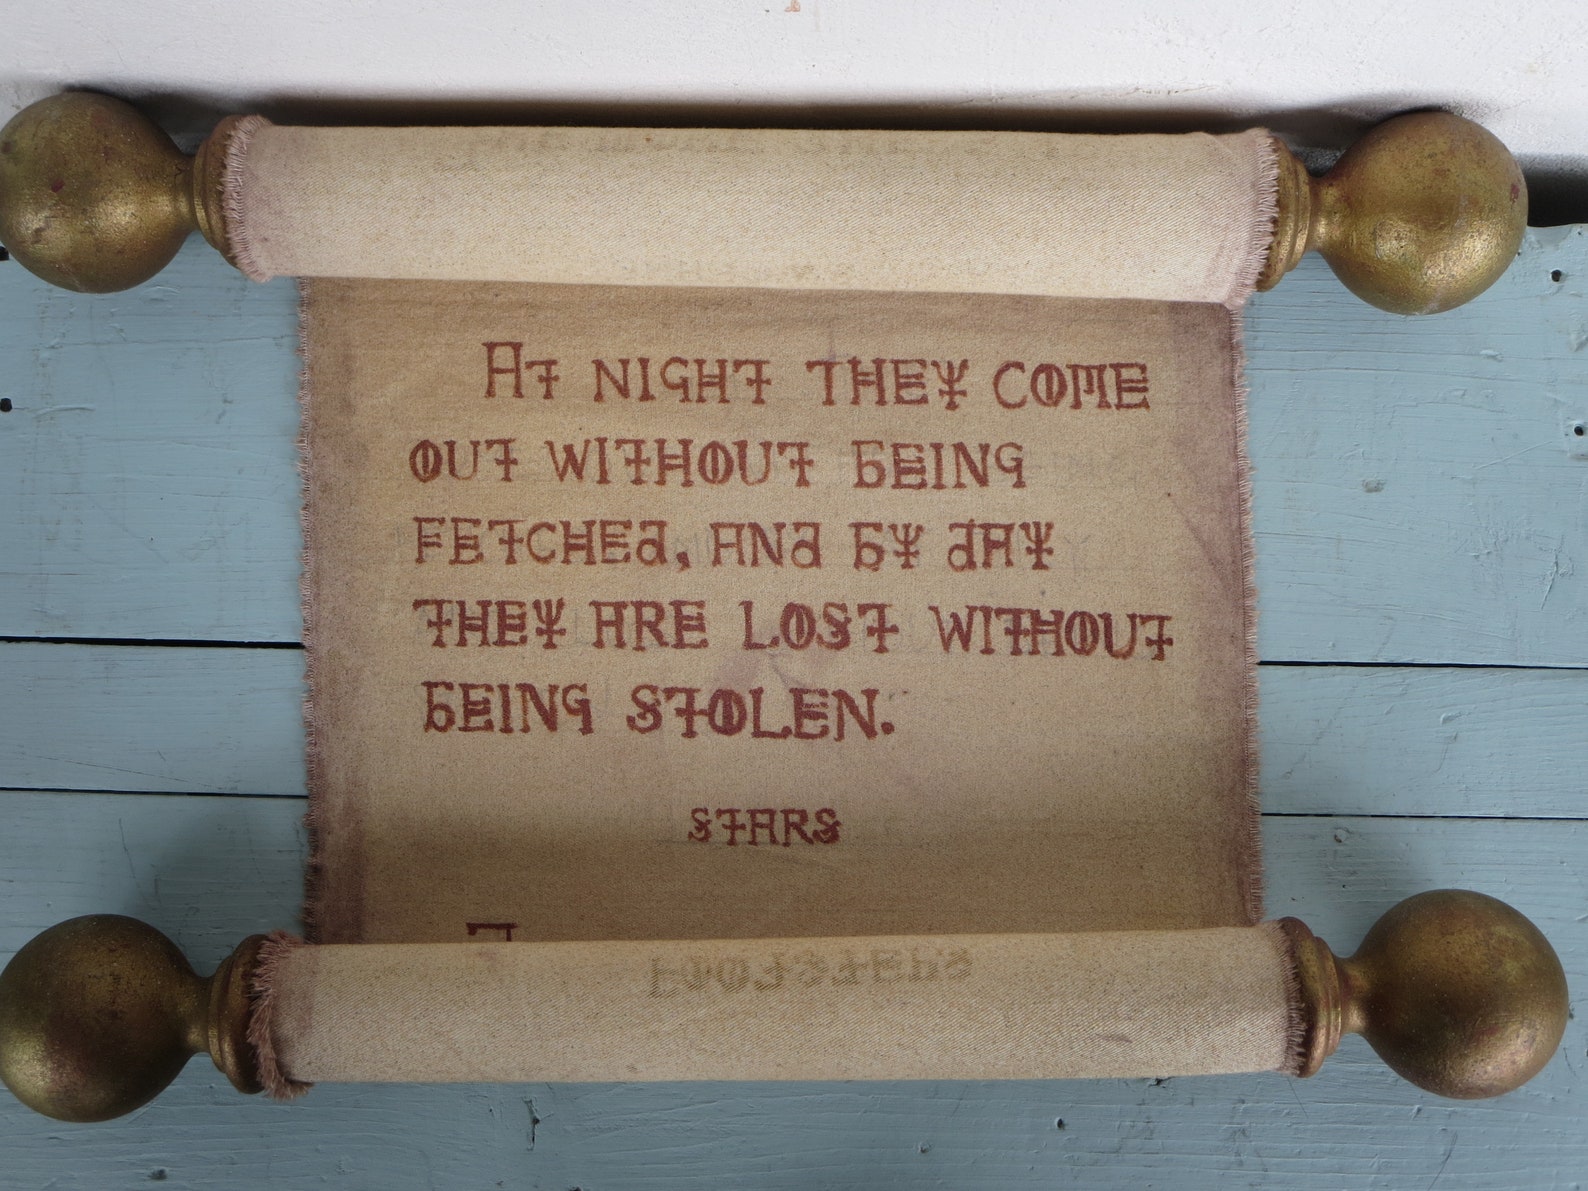 At NIGHT THEY COME
OUT WITHOUT BEING
FETCHED, AND BY DAY
THEY ARE LOST WITHOUT
BEING STOLEN.
STARS
FOOTSTEPS